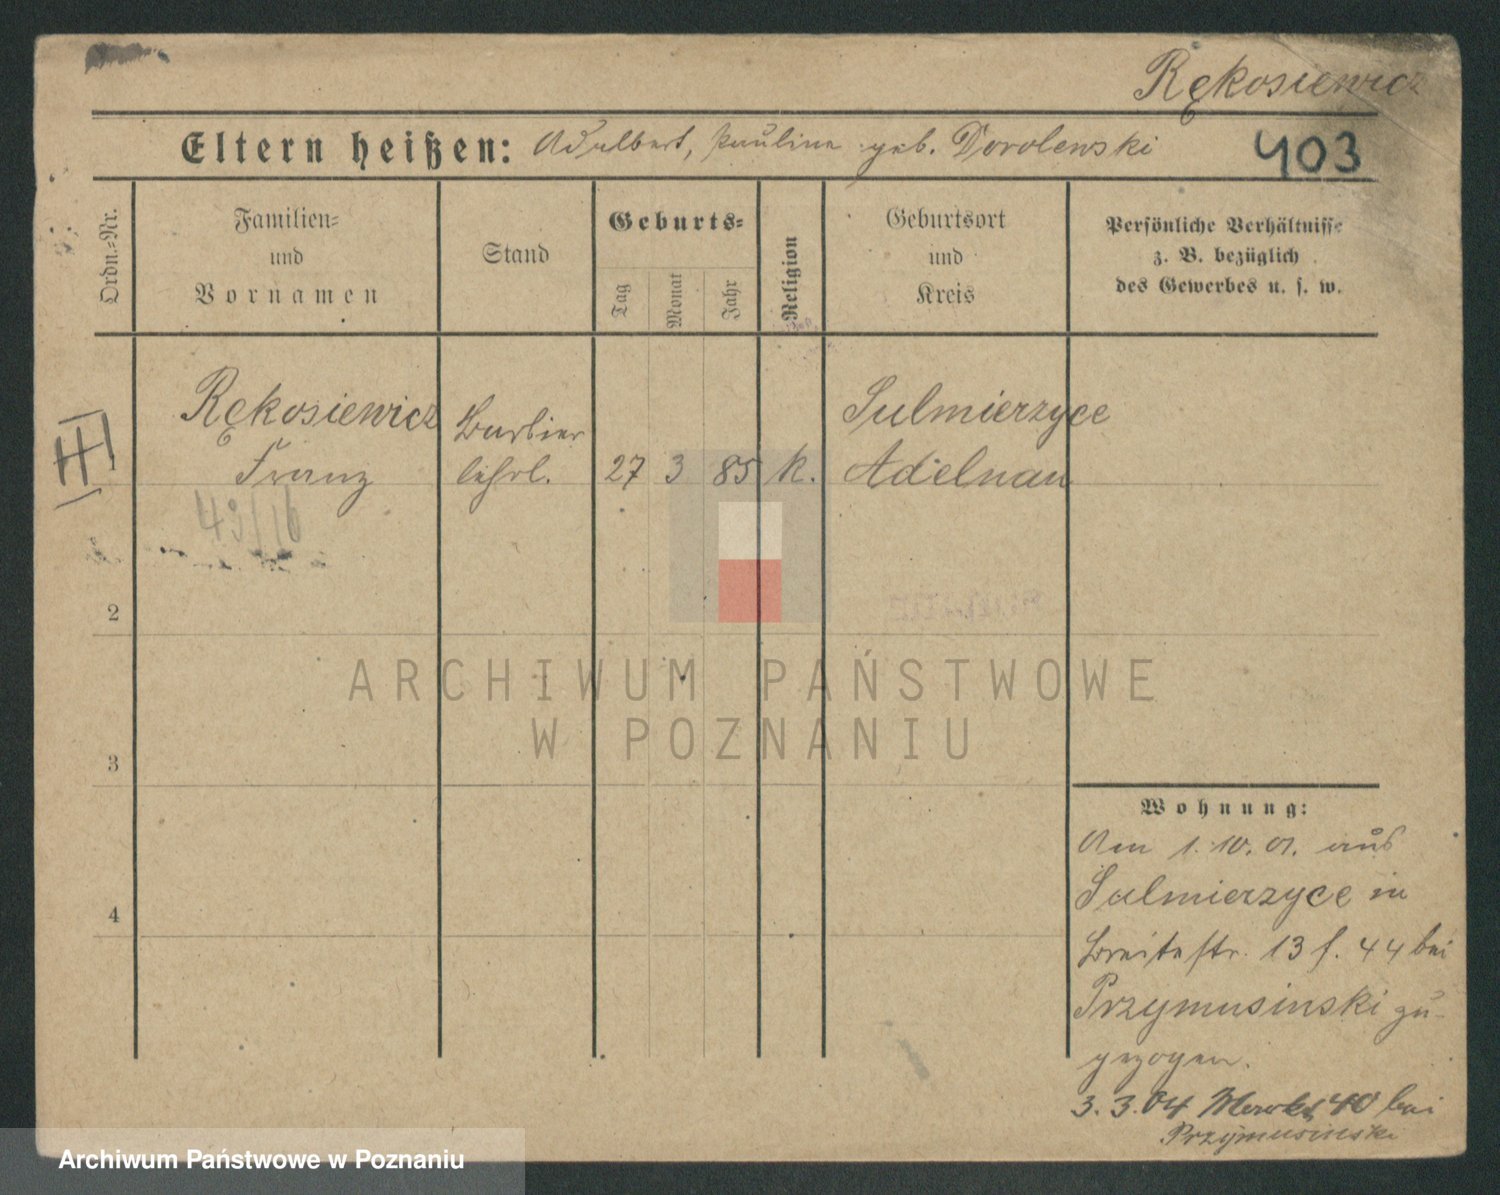 Rękosiewicz
Eltern heißen: Adalbert, Pauline geb. Dorolewski
403
Ordn.-Nr.
Familien-
und
Vornamen
Stand
Geburts-
Tag
Monat
Jahr
Religion
Geburtsort
und
Kreis
Persönliche Verhältnisse
z. B. bezüglich
des Gewerbes u. s. w.
Rękosiewicz
Franz
Barbier
lehrl.
27 3 85 K.
Sulmierzyce
Adelnau
43/16
2
3
4
ARCHIWUM PAŃSTWOWE
W POZNANIU
Wohnung:
Am 1.10.01. aus
Sulmierzyce in
Breitestr. 13 f. 44 bei
Przymusinski zu-
gezogen.
3.3.04 40 bei
Przymusinski
Archiwum Państwowe w Poznaniu